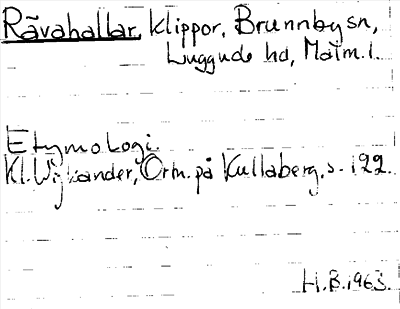 Rävahallar, klippor, Brunnby sn,
Luggude hd, Malm. l.
Etymologi.
Kl. Wikander, Ortn. på Kullaberg, s. 122.
H.B. 1963.